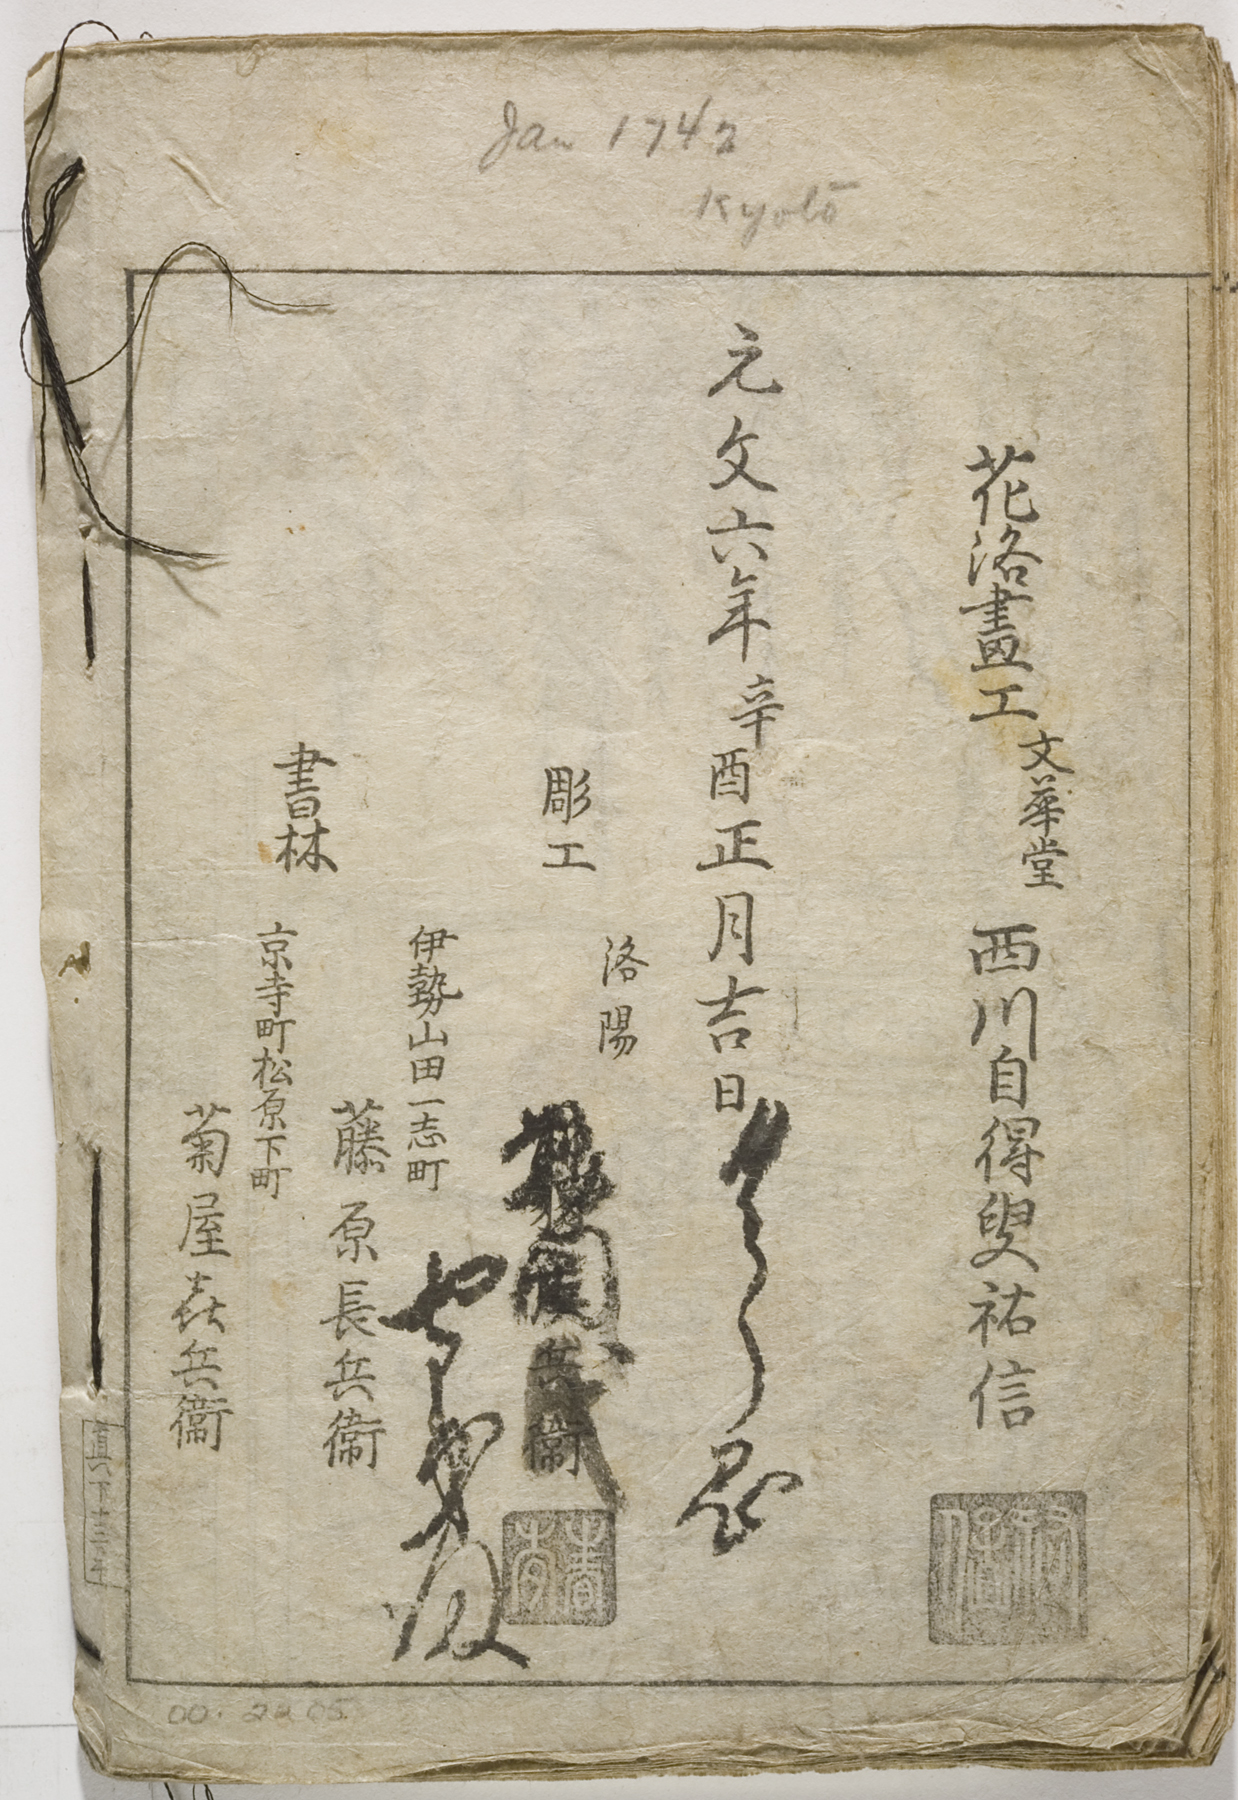 Jan 1742
Kyotō
花洛畫工 文華堂 西川自得叟祐信
祐信
元文六年辛酉正月吉日
彫工
洛陽
兵衞
書林
伊勢山田一志町
藤原長兵衞
京寺町松原下町
菊屋㐂兵衞
00.2205